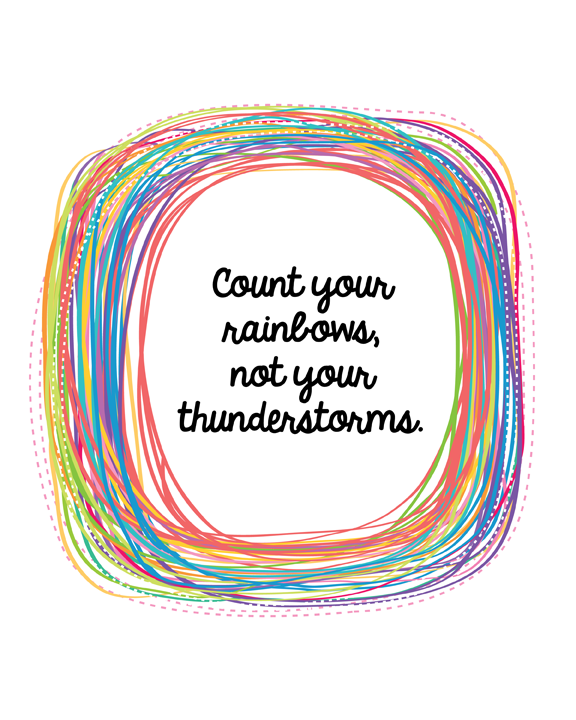 Count your
rainbows,
not your
thunderstorms.